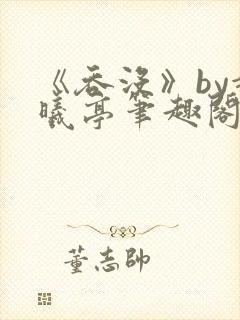 《吞没》by
曦亭笔趣阁
董志帥